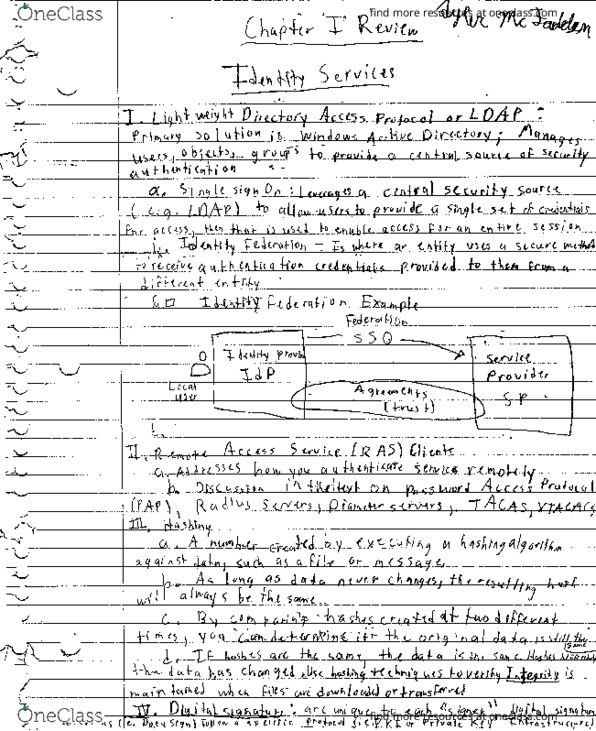 OneClass
find more resources at oneclass.com
Chapter 1 Review
Identity Services
I. Lightweight Directory Access Protocol or LDAP:
Primary solution is Windows Active Directory; Manages
users, objects, groups to provide a central source of security
authentication
a. Single sign On: Leverages a central security source
(e.g. LDAP) to allow users to provide a single set of credentials
for access, then that is used to enable access for an entire session
b. Identity Federation - Is where an entity uses a secure method
to receive authentication credentials provided to them from a
different entity
Identity Federation Example
Federation
SSO
Identity provi
IdP
Local
user
Agreements
(trust)
Service
Provider
SP
II. Remote Access Service (RAS) Clients
a. Addresses how you authenticate service remotely
b. Discussion in the text on Password Access Protocol
(PAP), Radius Servers, Diameter servers, TACAS, XTACACS
III. Hashing
a. A number created by executing a hashing algorithm
against data, such as a file or message.
b. As long as data never changes, the resulting hash
will always be the same.
c. By comparing hashes created at two different
times, you can determine if the original data is still the
same
d. If hashes are the same, the data is the same.
the data has changed else hashing techniques to verify Integrity is
maintained when files are downloaded or transferred
IV. Digital signature: are unique to each "signer" Digital signature
OneClass
find more resources at oneclass.com